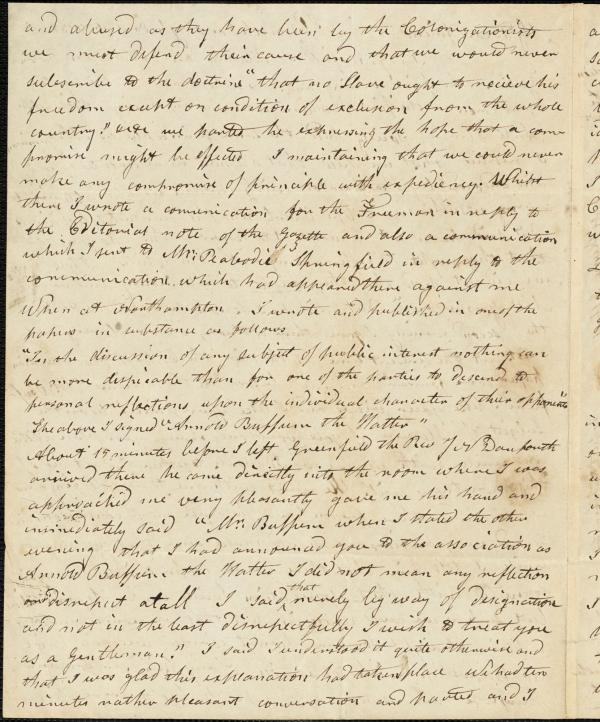 and abused as they have been by the Colonizationists
we must defend their cause and that we would never
subscribe to the doctrine "that no Slave ought to recieve his
freedom except on condition of exclusion from the whole
country." we parted he expressing the hope that a com-
promise might be effected I maintaining that we could never
make any compromise of principle with expediency. Whilst
there I wrote a comunication for the Freeman in reply to
the Editorial note of the Gazette and also a communication
which I sent to Mr. Peabodie Springfield in reply to the
communication which had appeared there against me
When at Northampton. I wrote and published in one of the
papers in substance as follows
"In the discussion of any subject of public interest nothing can
be more despicable than for one of the parties to descend to
personal reflections upon the individual character of their opponents"
The above I signed "Arnold Buffum the Hatter"
About 15 minutes before I left Greenfield the Rev J N Danforth
arrived there he came directly into the room where I was
approached me very pleasantly gave me his hand and
immediately said "Mr. Buffum when I stated the other
evening that I had announced you to the association as
Arnold Buffum the Hatter I did not mean any reflection
or disrespect at all I said that merely by way of designation
and not in the least disrespectfully I wish to treat you
as a gentleman." I said I understood it quite otherwise and
that I was glad this explanation had taken place We had ten
minutes rather pleasant conversation and parted and I